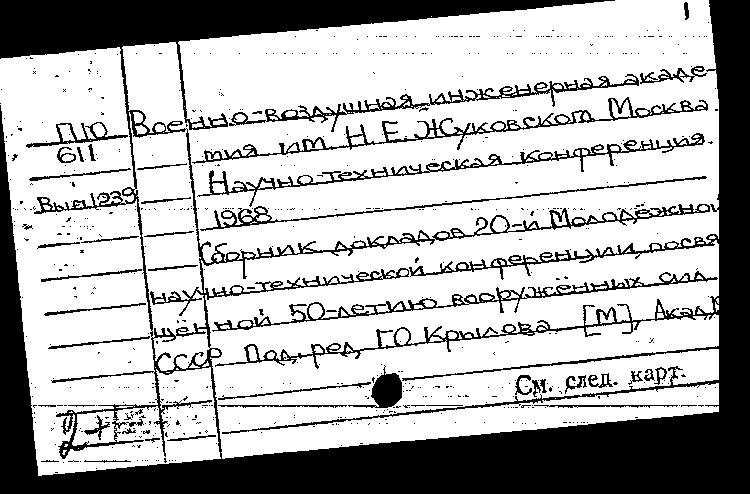 1
П10 Военно-воздушная инженерная акаде-
611 мия им. Н.Е.Жуковского Москва.
Научно-техническая конференция.
Вып1239
1968
Сборник докладов 20-й Молодёжной
научно-технической конференции, посвя
щённой 50-летию вооружённых сил
СССР Под. ред. Г.О Крылова [М], Акад,
См. след. карт.
2+